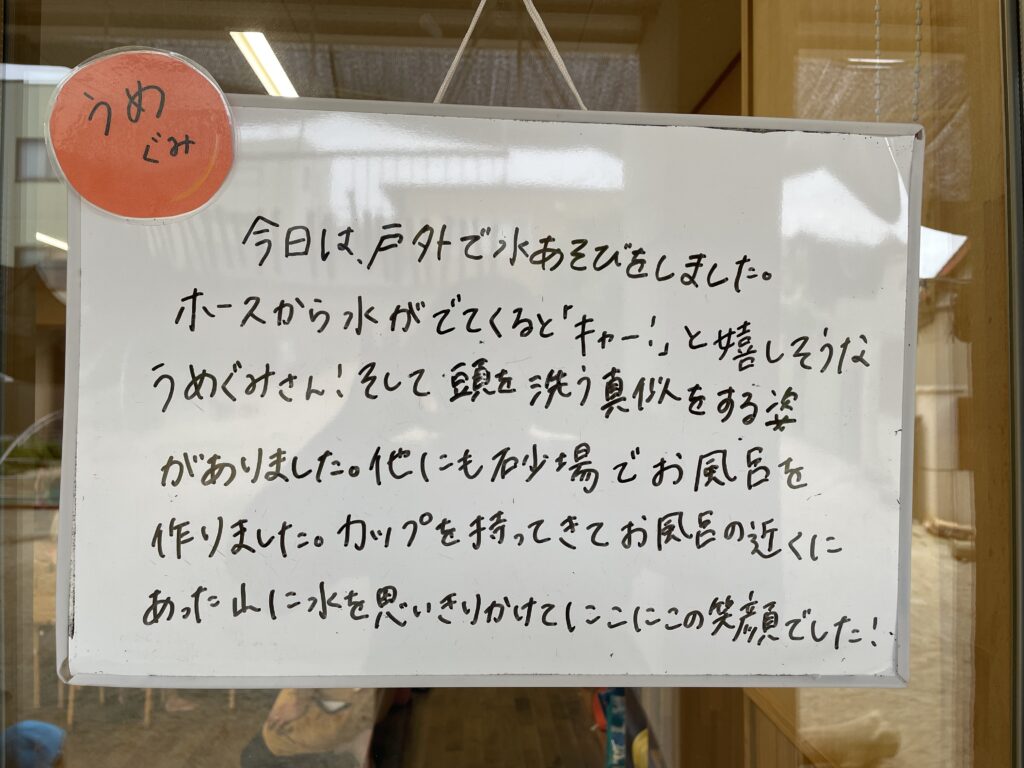 うめ
ぐみ
今日は、戸外で水あそびをしました。
ホースから水がでてくると「キャー!」と嬉しそうな
うめぐみさん!そして頭を洗う真似をする姿
がありました。他にも砂場でお風呂を
作りました。カップを持ってきてお風呂の近くに
あった山に水を思いきりかけてにこにこの笑顔でした!